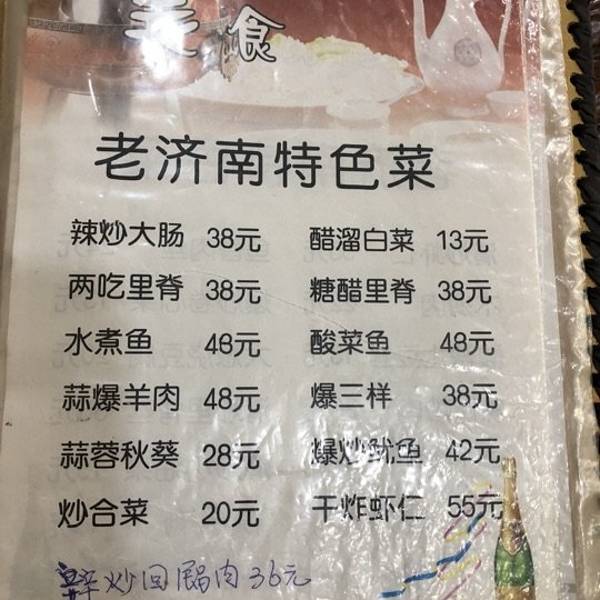 美食
老济南特色菜
辣炒大肠 38元 醋溜白菜 13元
两吃里脊 38元 糖醋里脊 38元
水煮鱼 48元 酸菜鱼 48元
蒜爆羊肉 48元 爆三样 38元
蒜蓉秋葵 28元 爆炒鱿鱼 42元
炒合菜 20元 干炸虾仁 55元
炒回锅肉 36元